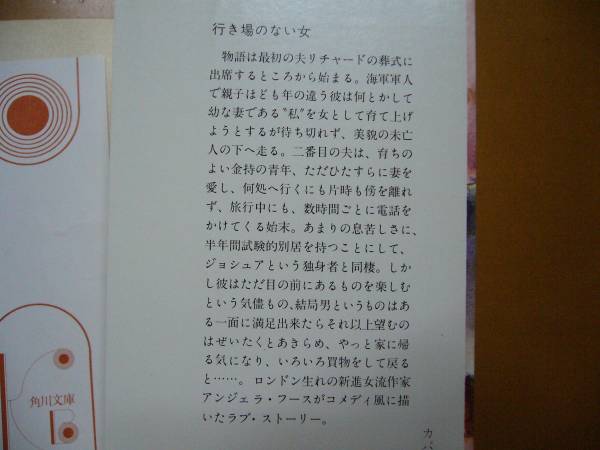 行き場のない女
物語は最初の夫リチャードの葬式に
出席するところから始まる。海軍軍人
で親子ほども年の違う彼は何とかして
幼な妻である〝私〟を女として育て上げ
ようとするが待ち切れず、美貌の未亡
人の下へ走る。二番目の夫は、育ちの
よい金持の青年、ただひたすらに妻を
愛し、何処へ行くにも片時も傍を離れ
ず、旅行中にも、数時間ごとに電話を
かけてくる始末。あまりの息苦しさに、
半年間試験的別居を持つことにして、
ジョシュアという独身者と同棲。しか
し彼はただ目の前にあるものを楽しむ
という気儘もの、結局男というものはあ
る一面に満足出来たらそれ以上望むの
はぜいたくとあきらめ、やっと家に帰
る気になり、いろいろ買物をして戻る
と……。ロンドン生れの新進女流作家
アンジェラ・フースがコメディ風に描
いたラブ・ストーリー。
角川文庫
カバ